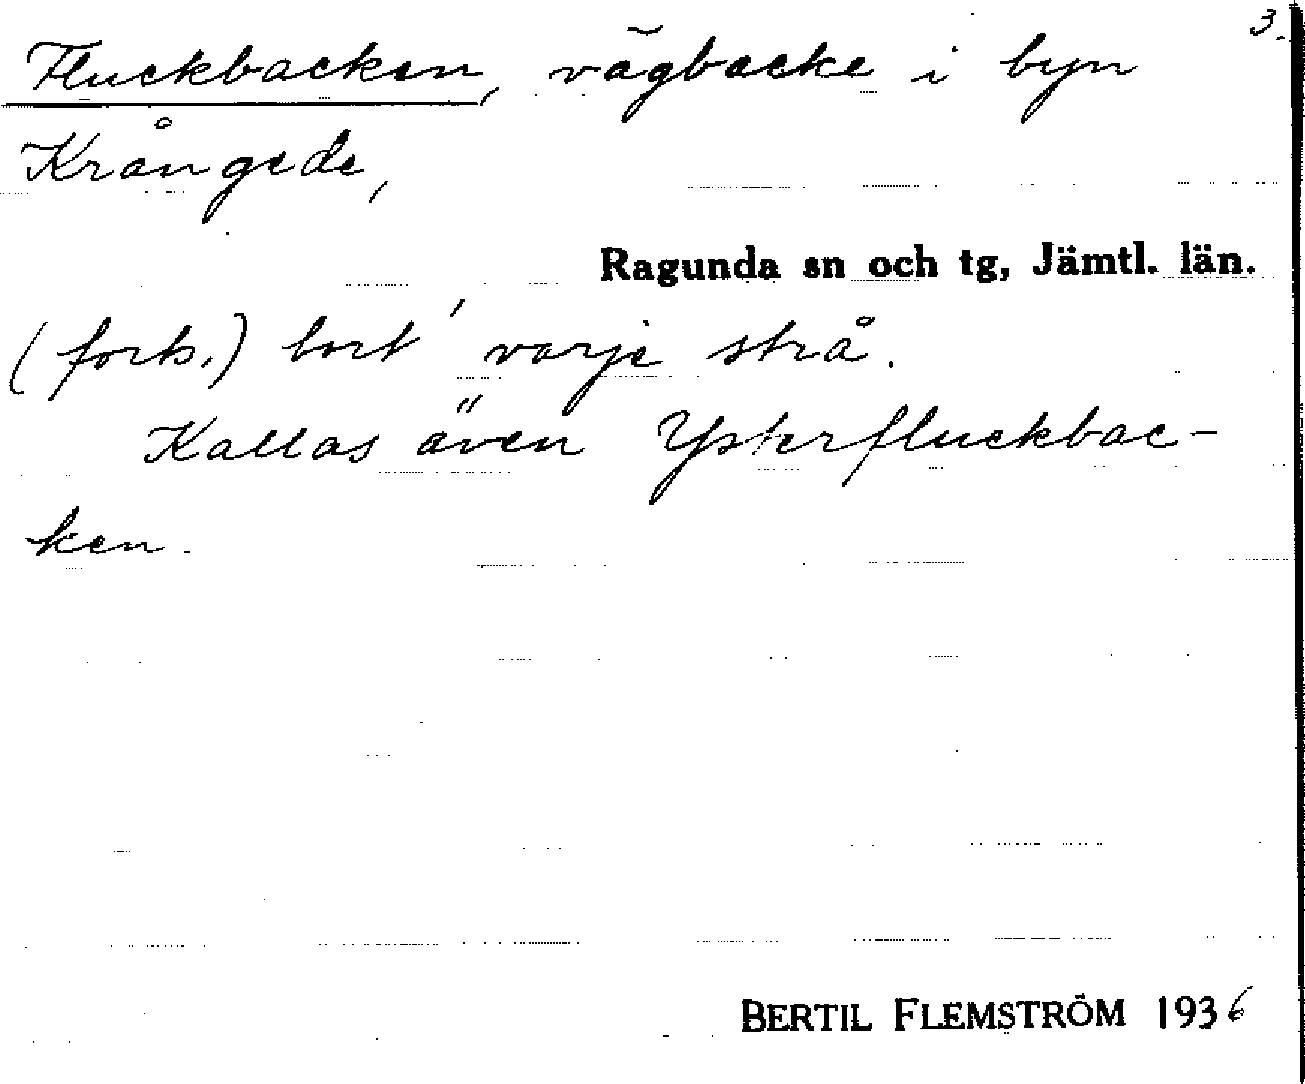 3.
Fluckbacken, vägbacke i byn
Krångede,
Ragunda sn och tg, Jämtl. län.
(forts.) bort varje strå.
Kallas även Ysterfluckbac-
ken.
BERTIL FLEMSTRÖM 1936